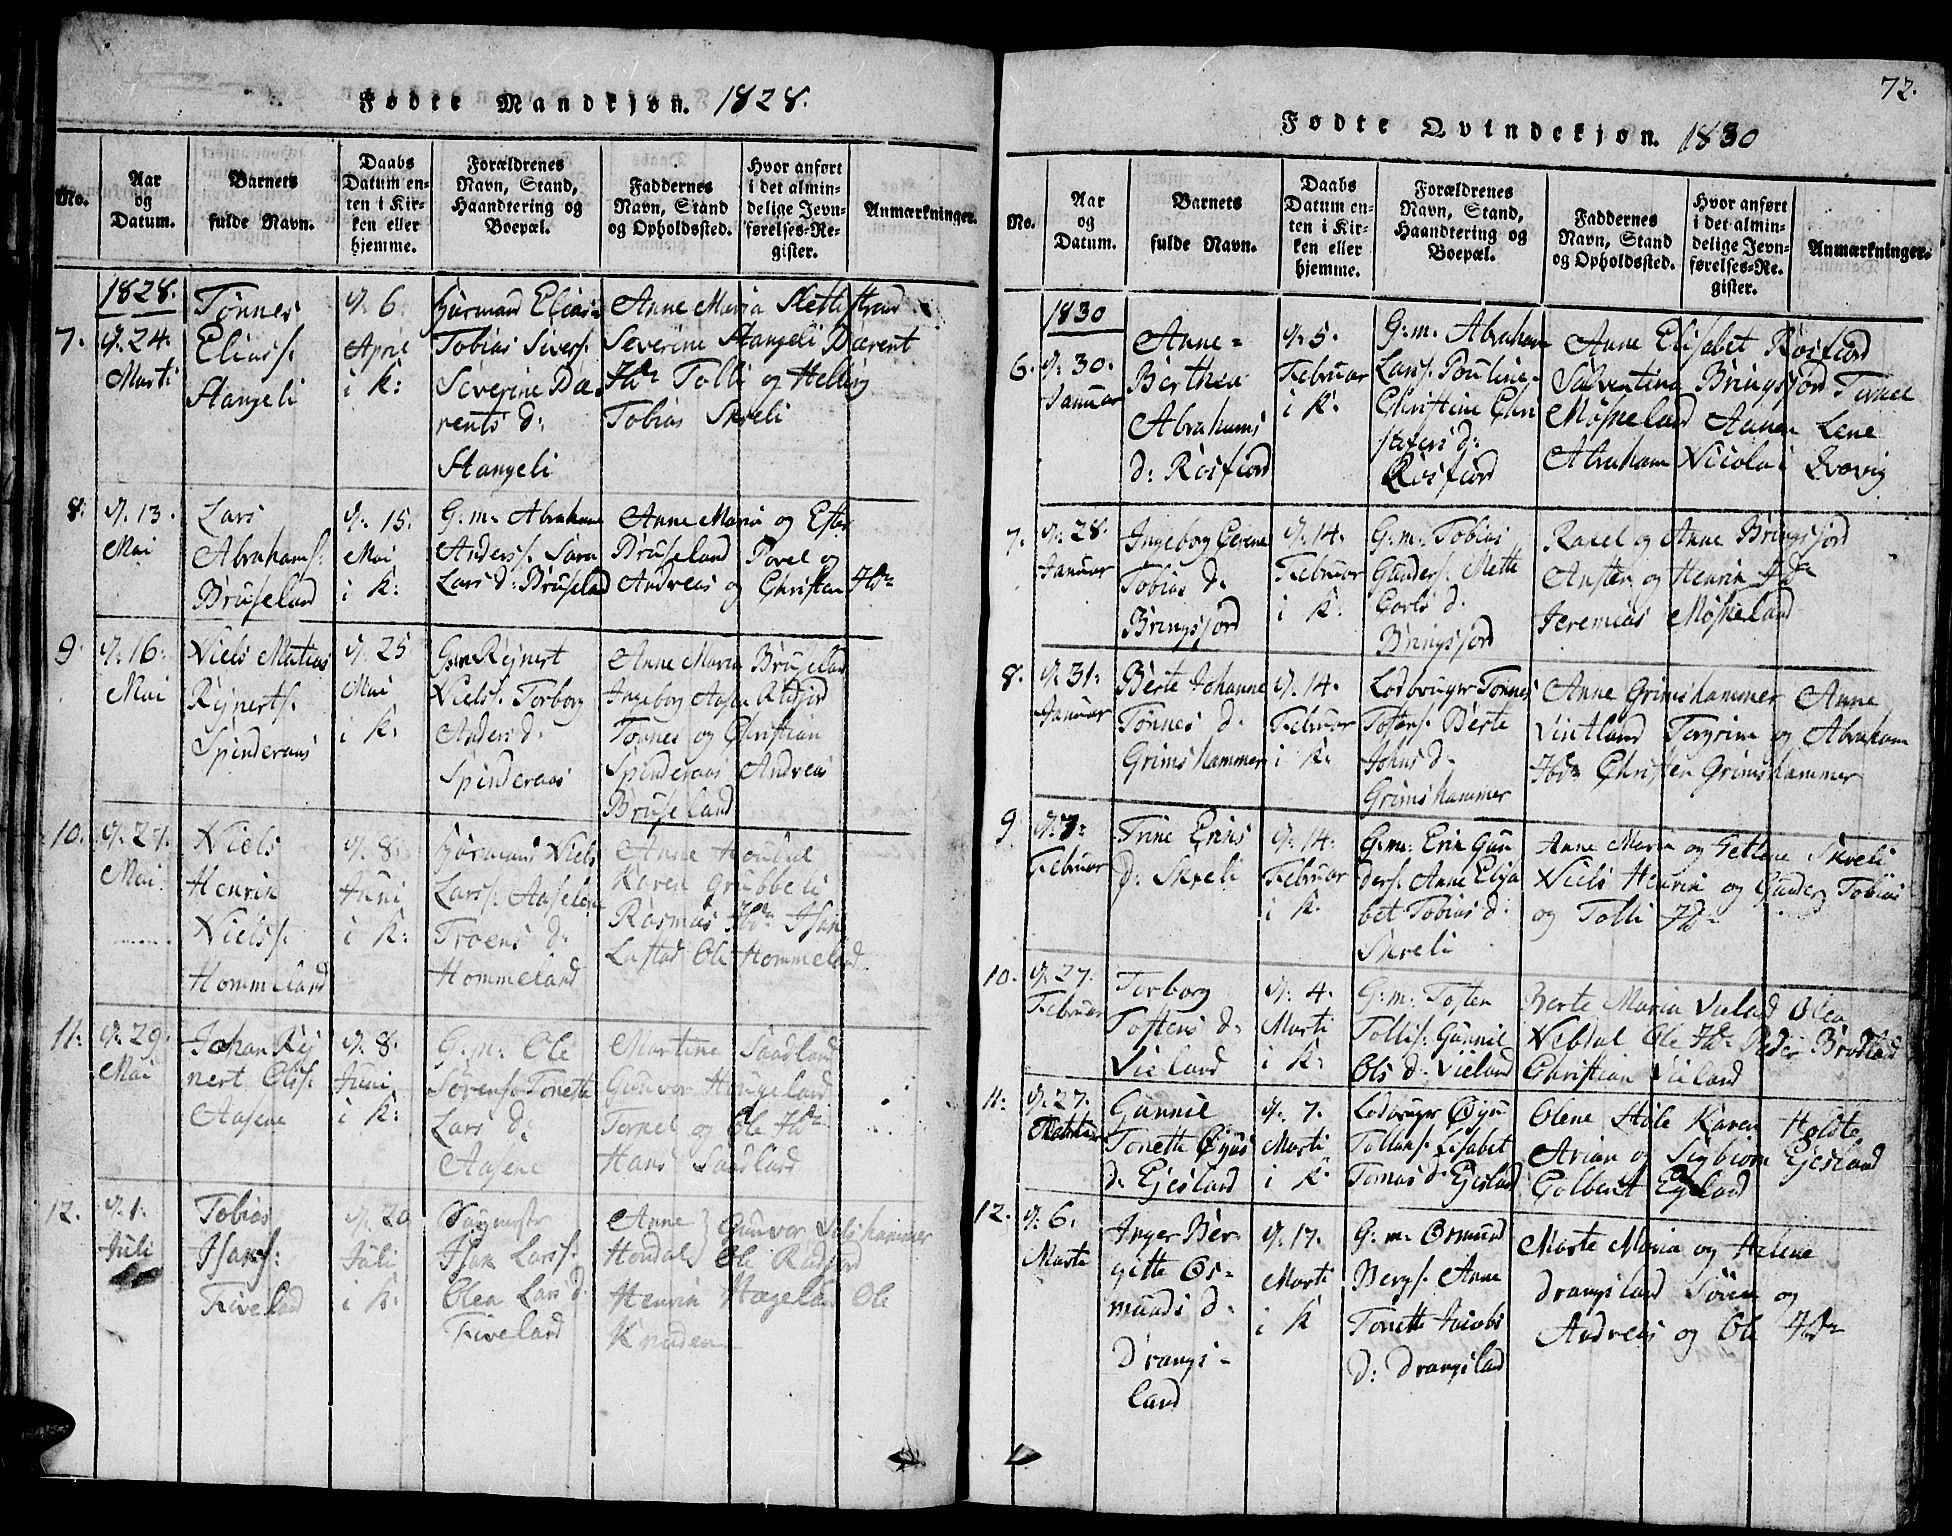 Fødte Mandkjøn. 1828.
No.
Aar
og
Datum.
Barnets
fulde Navn.
Daabs
Datum en-
ten i Kir-
ken eller
hjemme.
Forældrenes
Navn, Stand,
Haandtering og
Boepæl.
Faddernes
Navn, Stand
og Opholdssted.
Hvor anført
i det almin-
delige Jevn-
førelses-Re-
gister.
Anmærkninger.
1828.
7.
24.
Marti
Tønnes
Eliass.
Stangeli
6
April
i K:
Huusmand Elias
Tobias Sivers.
Severine Da-
rents d:
Stangeli
Anne Maria Slettestrand
Severine Stangeli Darent
Ibdm Tolli og Helling
Tobias Skreli
8.
13.
Mai
Lars
Abrahams.
Bruseland
15.
Mai
i K:
G:m: Abraham
Anders. Sara
Lars d: Bruseland
Anne Maria og Ester
Bruseland Povel og
Andreas og Christen Ibdm
9.
16.
Mai
Niels Matias
Rejnerts.
Spinderaas
25
Mai
i K:
G:m: Rejnert
Niels. Torborg
Anders d:
Spinderaas
Anne Maria Bruseland
Ingeborg Aasen Rødfjord
Tønnes og Christian
Spinderaas Andreas
Bruseland
10.
27.
Mai
Niels
Henrik
Niels.
Hommeland
8.
Juni
i K:
Huusmand Niels
Lars. Aaselene
Troens d:
Hommeland
Anne Houdal
Karen Grubbeli
Rasmus Ibdm Isak
Lastad Ole Hommeland
11.
29.
Mai
Johan Rej-
nert Ols.
Aasene
8.
Juni
i K:
G:m: Ole
Sørens. Tonette
Lars d:
Aasene
Martine Saadland
Gunvor Haugeland
Ternel og Ole Ibdm
Hans Saadland
12.
1.
Juli
Tobias
Isaks.
Fiveland
20
Juli
i K:
Isak Lars.
Olea Lars d.
Fiveland
Anne
Houdal Gunvor
Ole Rødfjord
Henrik Hægeland Ole
Knuden
72.
Fødte Qvindekjøn. 1830
No.
Aar
og
Datum.
Barnets
fulde Navn.
Daabs
Datum en-
ten i Kir-
ken eller
hjemme.
Forældrenes
Navn, Stand,
Haandtering og
Boepæl.
Faddernes
Navn, Stand
og Opholdssted.
Hvor anført
i det almin-
delige Jevn-
førelses-Re-
gister.
Anmærkninger.
1830
6.
30.
Januar
Anne-
Berthea
Abrahams
d: Rosfiord
5.
Februar
i K.
G:m. Abraham
Lars. Pouline
Christine Chri-
stofers d:
Rosfiord
Anne Elisabet Rosfiord
Salventina Bringsjord Ternel
Møskeland Aanen Lene
Abraham Nicolai
7.
28.
Januar
Ingeborg Serene
Tobias d.
Bringsjord
14.
Februar
i K.
G:m: Tobias
Gunders. Mette
Carls d.
Bringsjord
Rakel og Anne Bringsjord
Ansten og Henrik Ibdm
Jeremias Møskeland
8.
31.
Januar
Berte Johanne
Tønnes d.
Grimshammer
14.
Februar
i K.
Lodbruger Tønnes
Tostens. Berte
Johns d.
Grimshammer
Anne Grimshammer Anne
Vintland Tergrim og Abraham
Ibdm Christen Grimshammer
9
3.
Februar
Trine Eriks
d. Skreli
14.
Februar
i K.
G:m: Erik Gun-
ders. Anne Elisa-
bet Tobias d.
Skreli
Anne Maria og Gettene Skreli
Niels Henrik og Gunder Tobias
og Tolli Ibdm
10.
27.
Februar
Torborg
Tostens d:
Vieland
4.
Marti
i K:
G:m: Tosten
Tollis. Gunnil
Ols d. Vieland
Berte Maria Vieland Olea
Nebdal Ole Ibdm Peder
Christian Vieland
11.
27.
Februar
Gunnil
Tonette Øyus
d: Ejesland
7.
Marti
i K.
Lodbruger Øyu
Tollaks. Lisabet
Tomas d. Ejesland
Olene Høle Karen Holte
Arian og Sigbiørn Ejesland
Golbent Egeland
12.
6.
Marti
Inger Ber-
gitte Os-
munds d:
Drangs-
land
17.
Marti
i K
G:m: Osmund
Bergs. Anne
Tonette Jacobs
d: Drangsland
Marte Maria og Helene
Drangsland Søren og
Andreas og Ole Ibdm